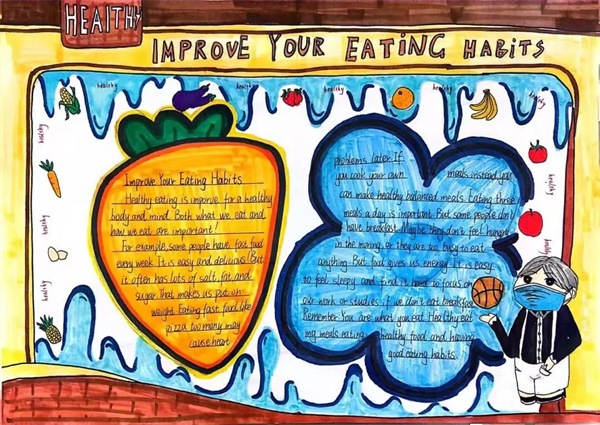 HEALTHY
IMPROVE YOUR EATING HABITS
healthy
healthy
healthy
healthy
healthy
healthy
healthy
healthy
healthy
healthy
Improve Your Eating Habits
Healthy eating is imporve for a healthy
body and mind. Both what we eat and
how we eat are important!
For example, some people have fast food
every week. It is easy and delicious. But
it often has lots of salt, fat and
sugar that makes us put on
weight. Eating fast food like
pizza too many may
cause heart
problems later. If
you cook your own meals instead, you
can make healthy balanced meals. Eating three
meals a day is important. But some people don't
have breakfast. Maybe they don't feel hungry
in the morning or they are too busy to eat
anything. But food gives us energy. It is easy
to feel sleepy and find it hard to focus on
our work or studies if we don't eat breakfast.
Remember: You are what you eat. Healthy eat
ing meals eating healthy food and having
good eating habits.